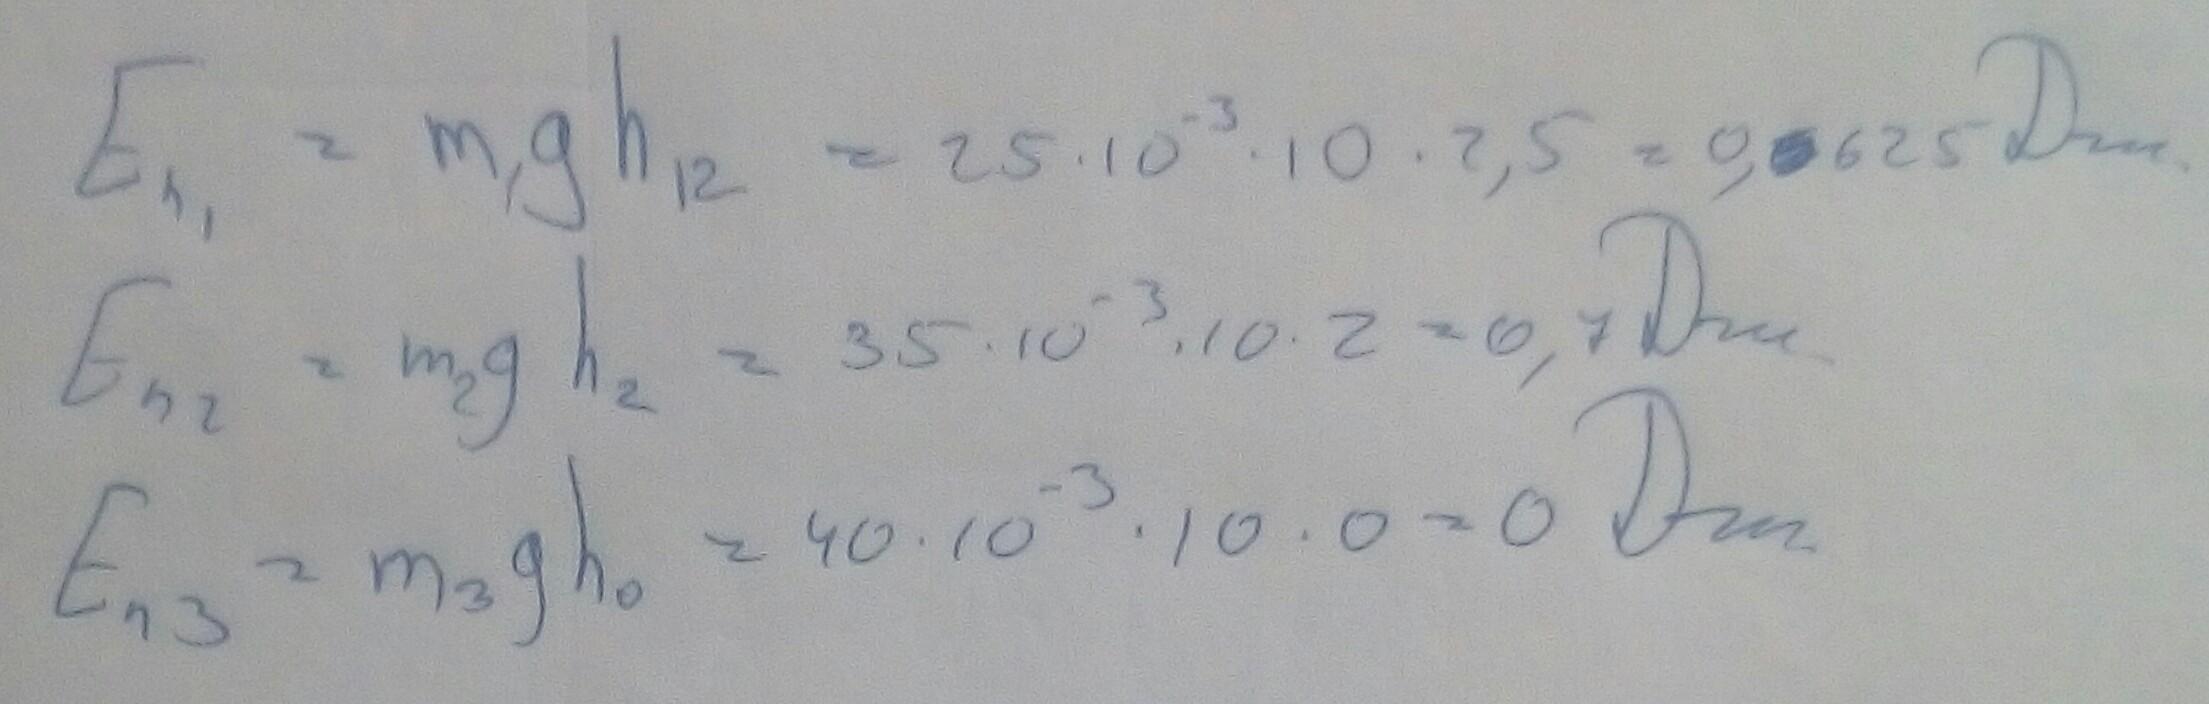 Eп₁ = m₁gh₁₂ = 25·10⁻³·10·2,5 = 0,625 Дж.
Eп₂ = m₂gh₂ = 35·10⁻³·10·2 = 0,7 Дж
Eп₃ = m₃gh₀ = 40·10⁻³·10·0 = 0 Дж